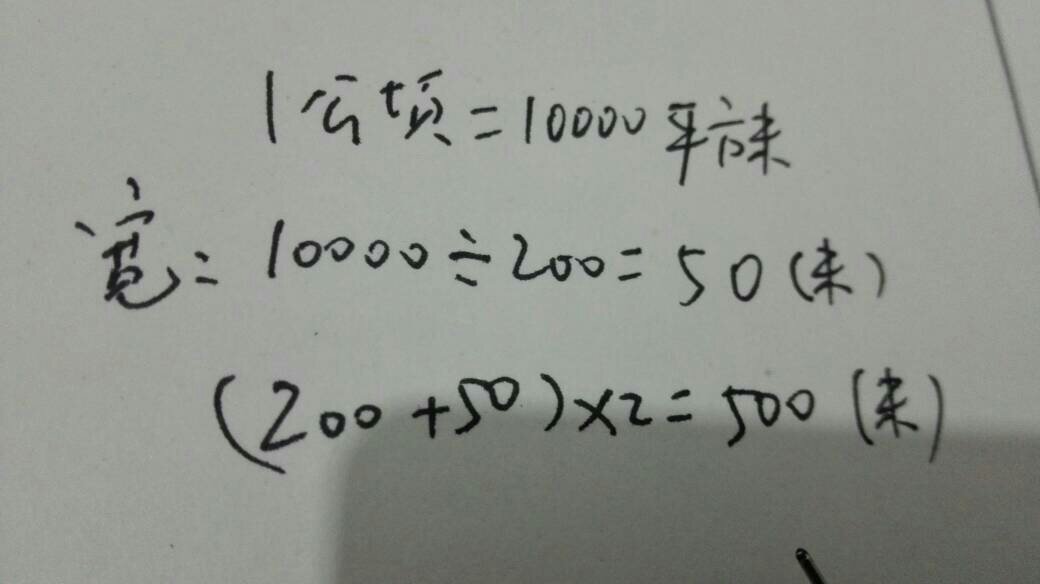 1公顷=10000平方米
宽:10000÷200=50(米)
(200+50)×2=500(米)